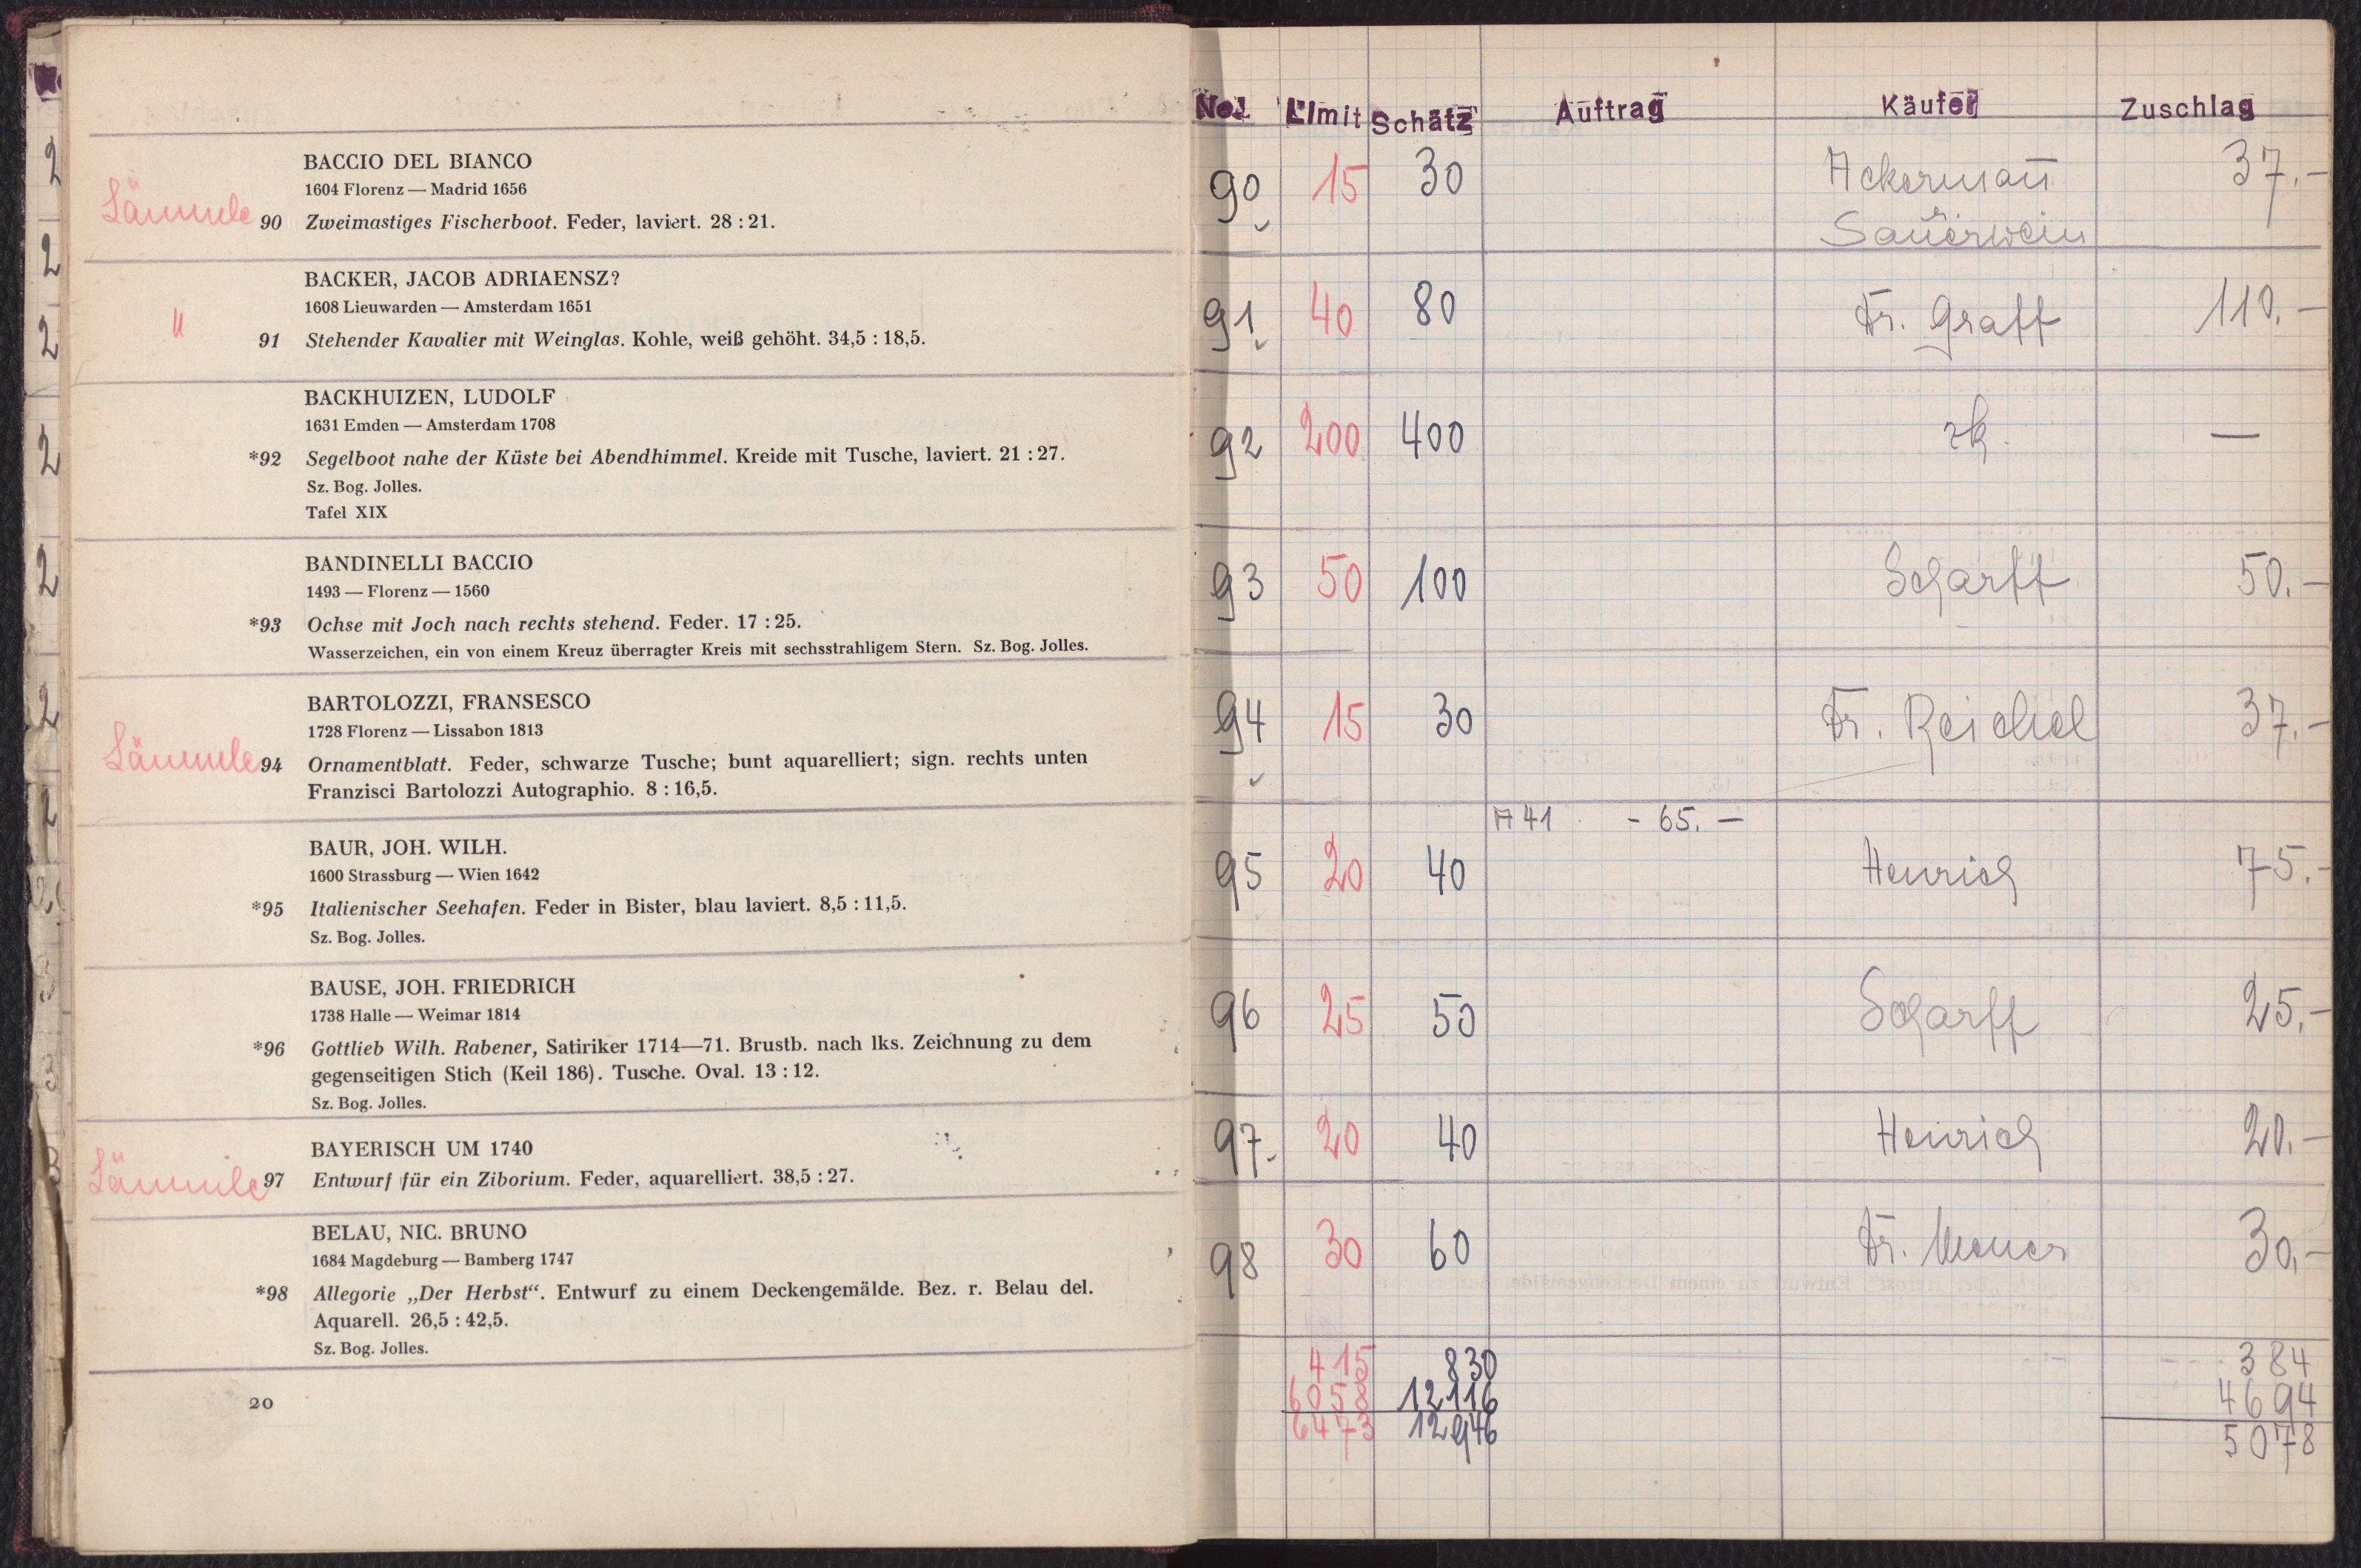 BACCIO DEL BIANCO
1604 Florenz — Madrid 1656
Lämmle 90 Zweimastiges Fischerboot. Feder, laviert. 28 : 21.
BACKER, JACOB ADRIAENSZ?
1608 Lieuwarden — Amsterdam 1651
" 91 Stehender Kavalier mit Weinglas. Kohle, weiß gehöht. 34,5 : 18,5.
BACKHUIZEN, LUDOLF
1631 Emden — Amsterdam 1708
*92 Segelboot nahe der Küste bei Abendhimmel. Kreide mit Tusche, laviert. 21 : 27.
Sz. Bog. Jolles.
Tafel XIX
BANDINELLI BACCIO
1493 — Florenz — 1560
*93 Ochse mit Joch nach rechts stehend. Feder. 17 : 25.
Wasserzeichen, ein von einem Kreuz überragter Kreis mit sechsstrahligem Stern. Sz. Bog. Jolles.
BARTOLOZZI, FRANSESCO
1728 Florenz — Lissabon 1813
Lämmle 94 Ornamentblatt. Feder, schwarze Tusche; bunt aquarelliert; sign. rechts unten
Franzisci Bartolozzi Autographio. 8 : 16,5.
BAUR, JOH. WILH.
1600 Strassburg — Wien 1642
*95 Italienischer Seehafen. Feder in Bister, blau laviert. 8,5 : 11,5.
Sz. Bog. Jolles.
BAUSE, JOH. FRIEDRICH
1738 Halle — Weimar 1814
*96 Gottlieb Wilh. Rabener, Satiriker 1714—71. Brustb. nach lks. Zeichnung zu dem
gegenseitigen Stich (Keil 186). Tusche. Oval. 13 : 12.
Sz. Bog. Jolles.
BAYERISCH UM 1740
Lämmle 97 Entwurf für ein Ziborium. Feder, aquarelliert. 38,5 : 27.
BELAU, NIC. BRUNO
1684 Magdeburg — Bamberg 1747
*98 Allegorie „Der Herbst“. Entwurf zu einem Deckengemälde. Bez. r. Belau del.
Aquarell. 26,5 : 42,5.
Sz. Bog. Jolles.
20
No. Limit Schätz Auftrag Käufer Zuschlag
90 15 30 Ackermañ 37.-
Sauerwein
91 40 80 Dr. Graff 110.-
92 200 400 zk. —
93 50 100 Scharff 50.-
94 15 30 Dr. Reichel 37.-
A 41 - 65. —
95 20 40 Henrich 75.-
96 25 50 Scharff 25.-
97. 20 40 Henrich 20.-
98 30 60 Dr. 30,-
415 830 384
6058 12116 4694
6473 12946 5078